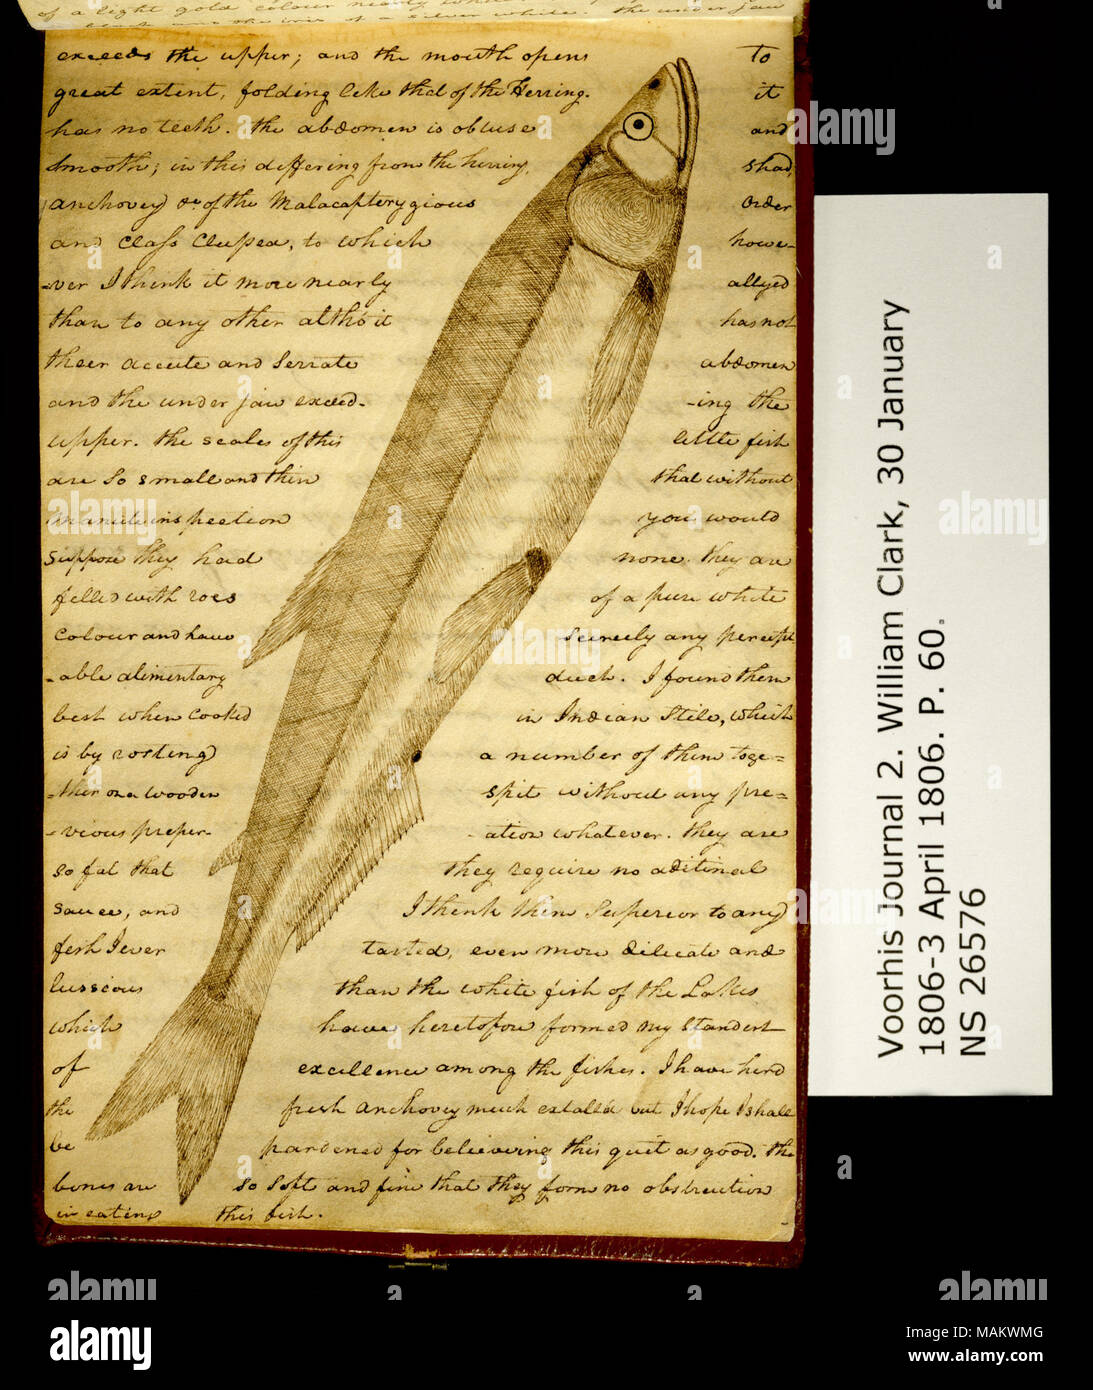 of a light gold colour nearly white. The under jaw
exceeds the upper; and the mouth opens To
great extent, folding like that of the Herring. it
has no teeth. the abdomen is obtuse and
smooth; in this differing from the herring, shad,
anchovey &c of the Malacapterygious Order
and Class Clupea, to which howe-
-ver I think it more nearly allyed
than to any other altho' it has not
their accute and serrate abdomen
and the under jaw exceed- -ing the
upper. the scales of this little fish
are so small and thin that without
minute inspection you would
suppose they had none. they are
filled with roes of a pure white
colour and have scercely any percept
-able alimentary duct. I found them
best when cooked in Indian Stile, which
is by rosting a number of them toge=
=ther on a wooden spit without any pre=
-vious preper- -ation whatever. they are
so fat that they require no aditinal
sauce, and I think them Superior to any
fish I ever tasted, even more dilicate and
lusscious than the white fish of the Lakes
which have heretofore formed my standert
of excellence among the fishes. I have herd
the fresh anchovey much extalld but I hope I shall
be pardened for believeing this quit as good. the
bones are so soft and fine that they form no obstruction
in eating this fish.
Voorhis Journal 2. William Clark, 30 January
1806-3 April 1806. P. 60.
NS 26576
alamy
Image ID: MAKWMG
www.alamy.com